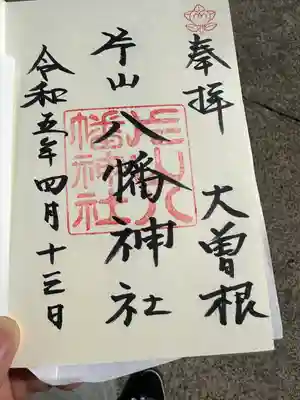 奉拝 大曽根
片山八幡神社
令和五年四月十三日
片山八幡神社